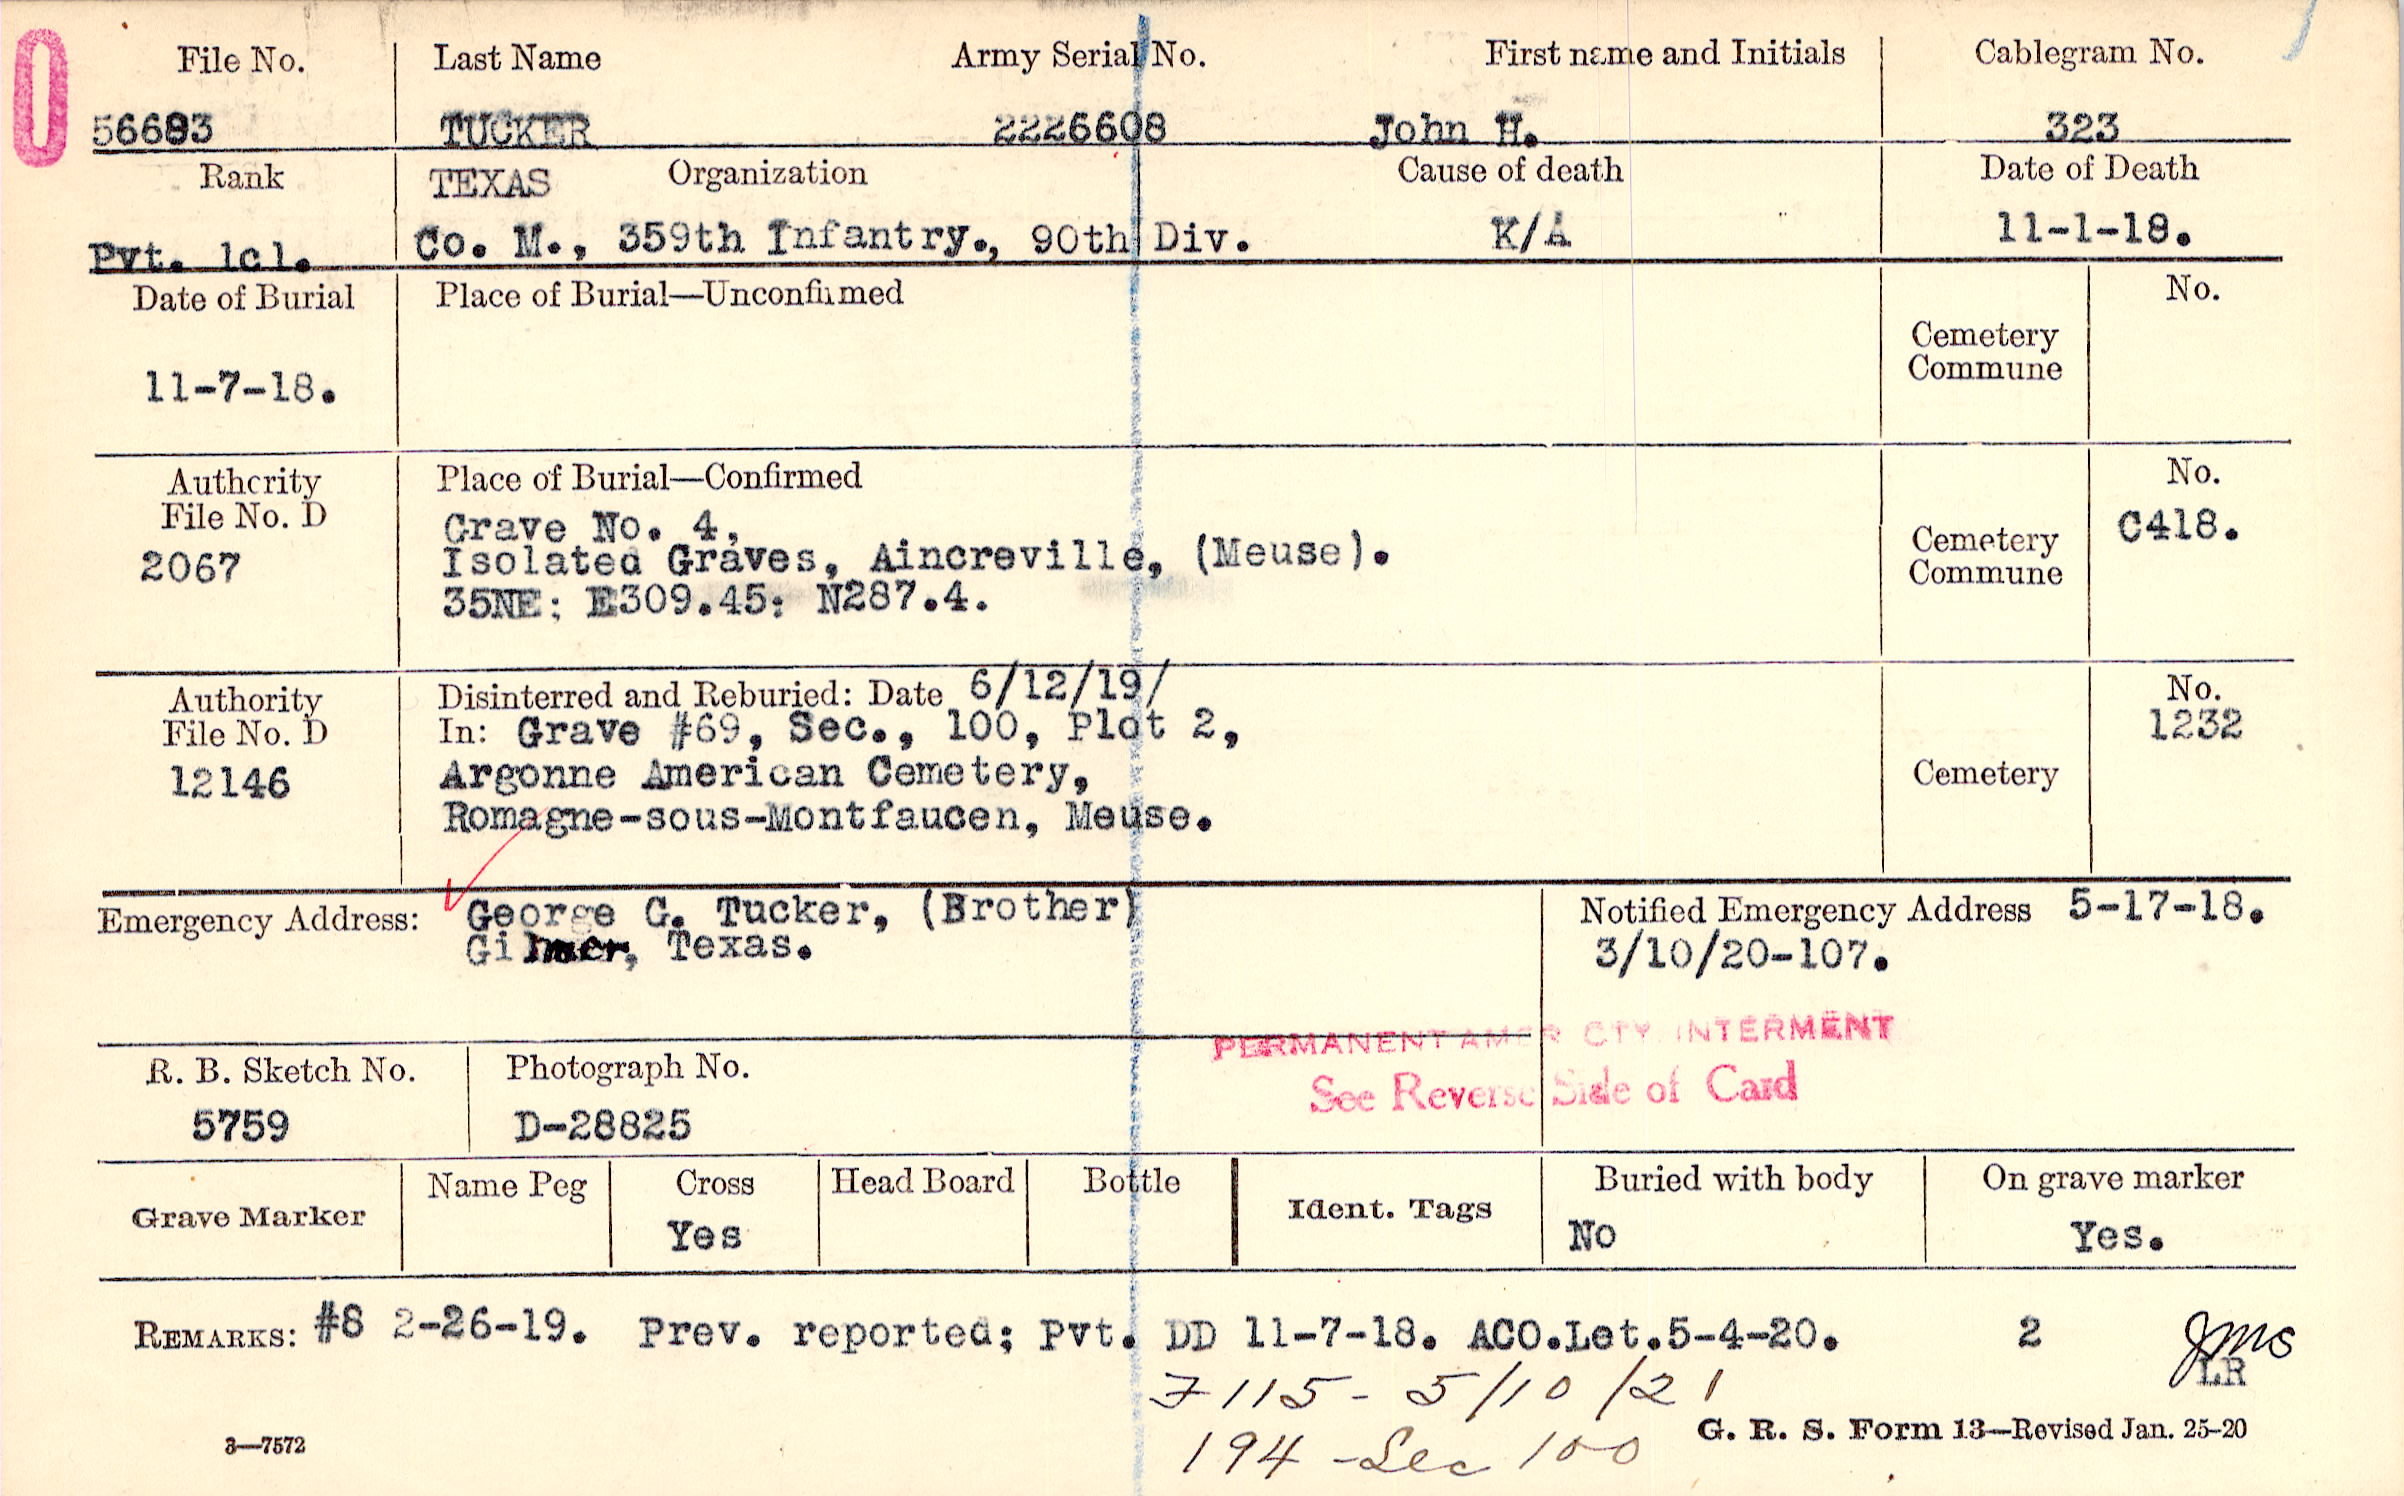 0
File No. Last Name Army Serial No. First name and Initials Cablegram No.
56683 TUCKER 2226608 John H. 323
Rank TEXAS Organization Cause of death Date of Death
Pvt. 1cl. Co. M., 359th Infantry., 90th Div. K/A 11-1-18.
Date of Burial Place of Burial—Unconfirmed No.
Cemetery
Commune
11-7-18.
Authority Place of Burial—Confirmed No.
File No. D Grave No. 4, C418.
2067 Isolated Graves, Aincreville, (Meuse). Cemetery
Commune
35NE: E309.45: N287.4.
Authority Disinterred and Reburied: Date 6/12/19/ No.
File No. D In: Grave #69, Sec., 100, Plot 2, 1232
12146 Argonne American Cemetery, Cemetery
Romagne-sous-Montfaucen, Meuse.
Emergency Address: George G. Tucker, (Brother) Notified Emergency Address 5-17-18.
Gilmer, Texas. 3/10/20-107.
PERMANENT AMER CTY INTERMENT
R. B. Sketch No. Photograph No. See Reverse Side of Card
5759 D-28825
Grave Marker Name Peg Cross Head Board Bottle Ident. Tags Buried with body On grave marker
Yes No Yes.
REMARKS: #8 2-26-19. Prev. reported; Pvt. DD 11-7-18. ACO.Let.5-4-20. 2 JMS
LR
7115 - 5/10/21
194 - Sec 100
3—7572 G. R. S. Form 13—Revised Jan. 25-20